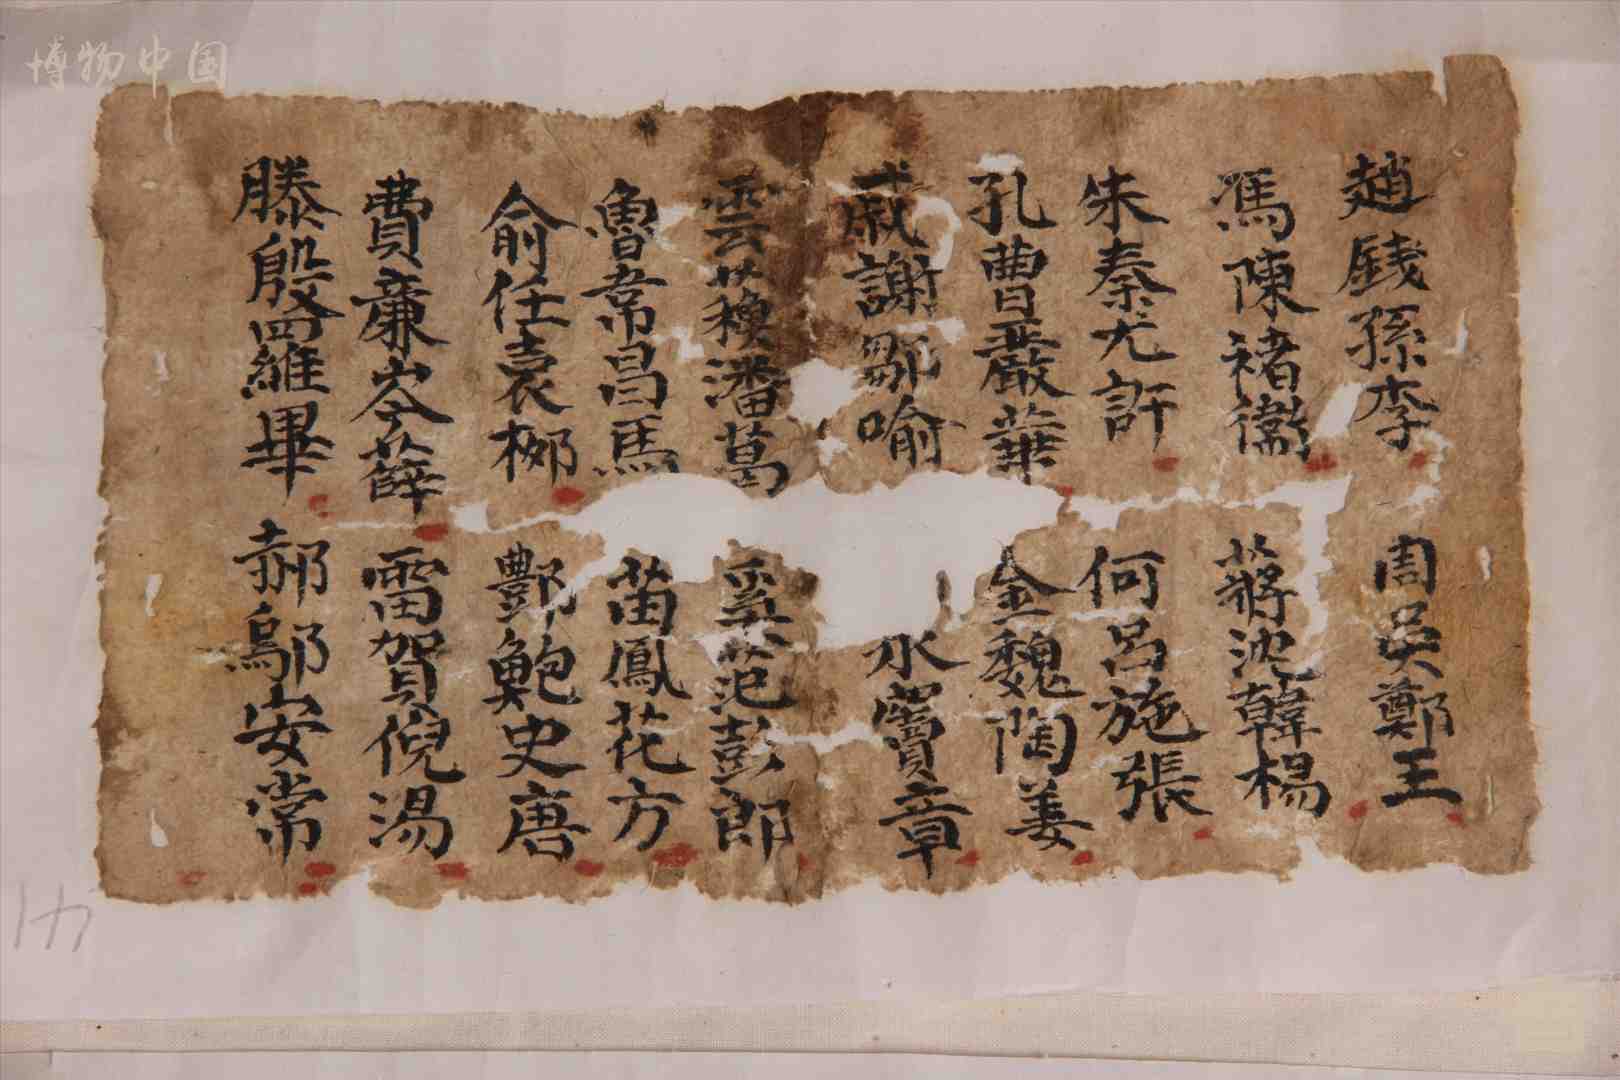 博物中国
趙錢孫李 周吳鄭王
馮陳褚衛 蔣沈韓楊
朱秦尤許 何呂施張
孔曹嚴華 金魏陶姜
戚謝鄒喻 水竇章
雲蘇潘葛 奚范彭郎
魯韋昌馬 苗鳳花方
俞任袁柳 酆鮑史唐
費廉岑薛 雷賀倪湯
滕殷羅畢 郝鄔安常